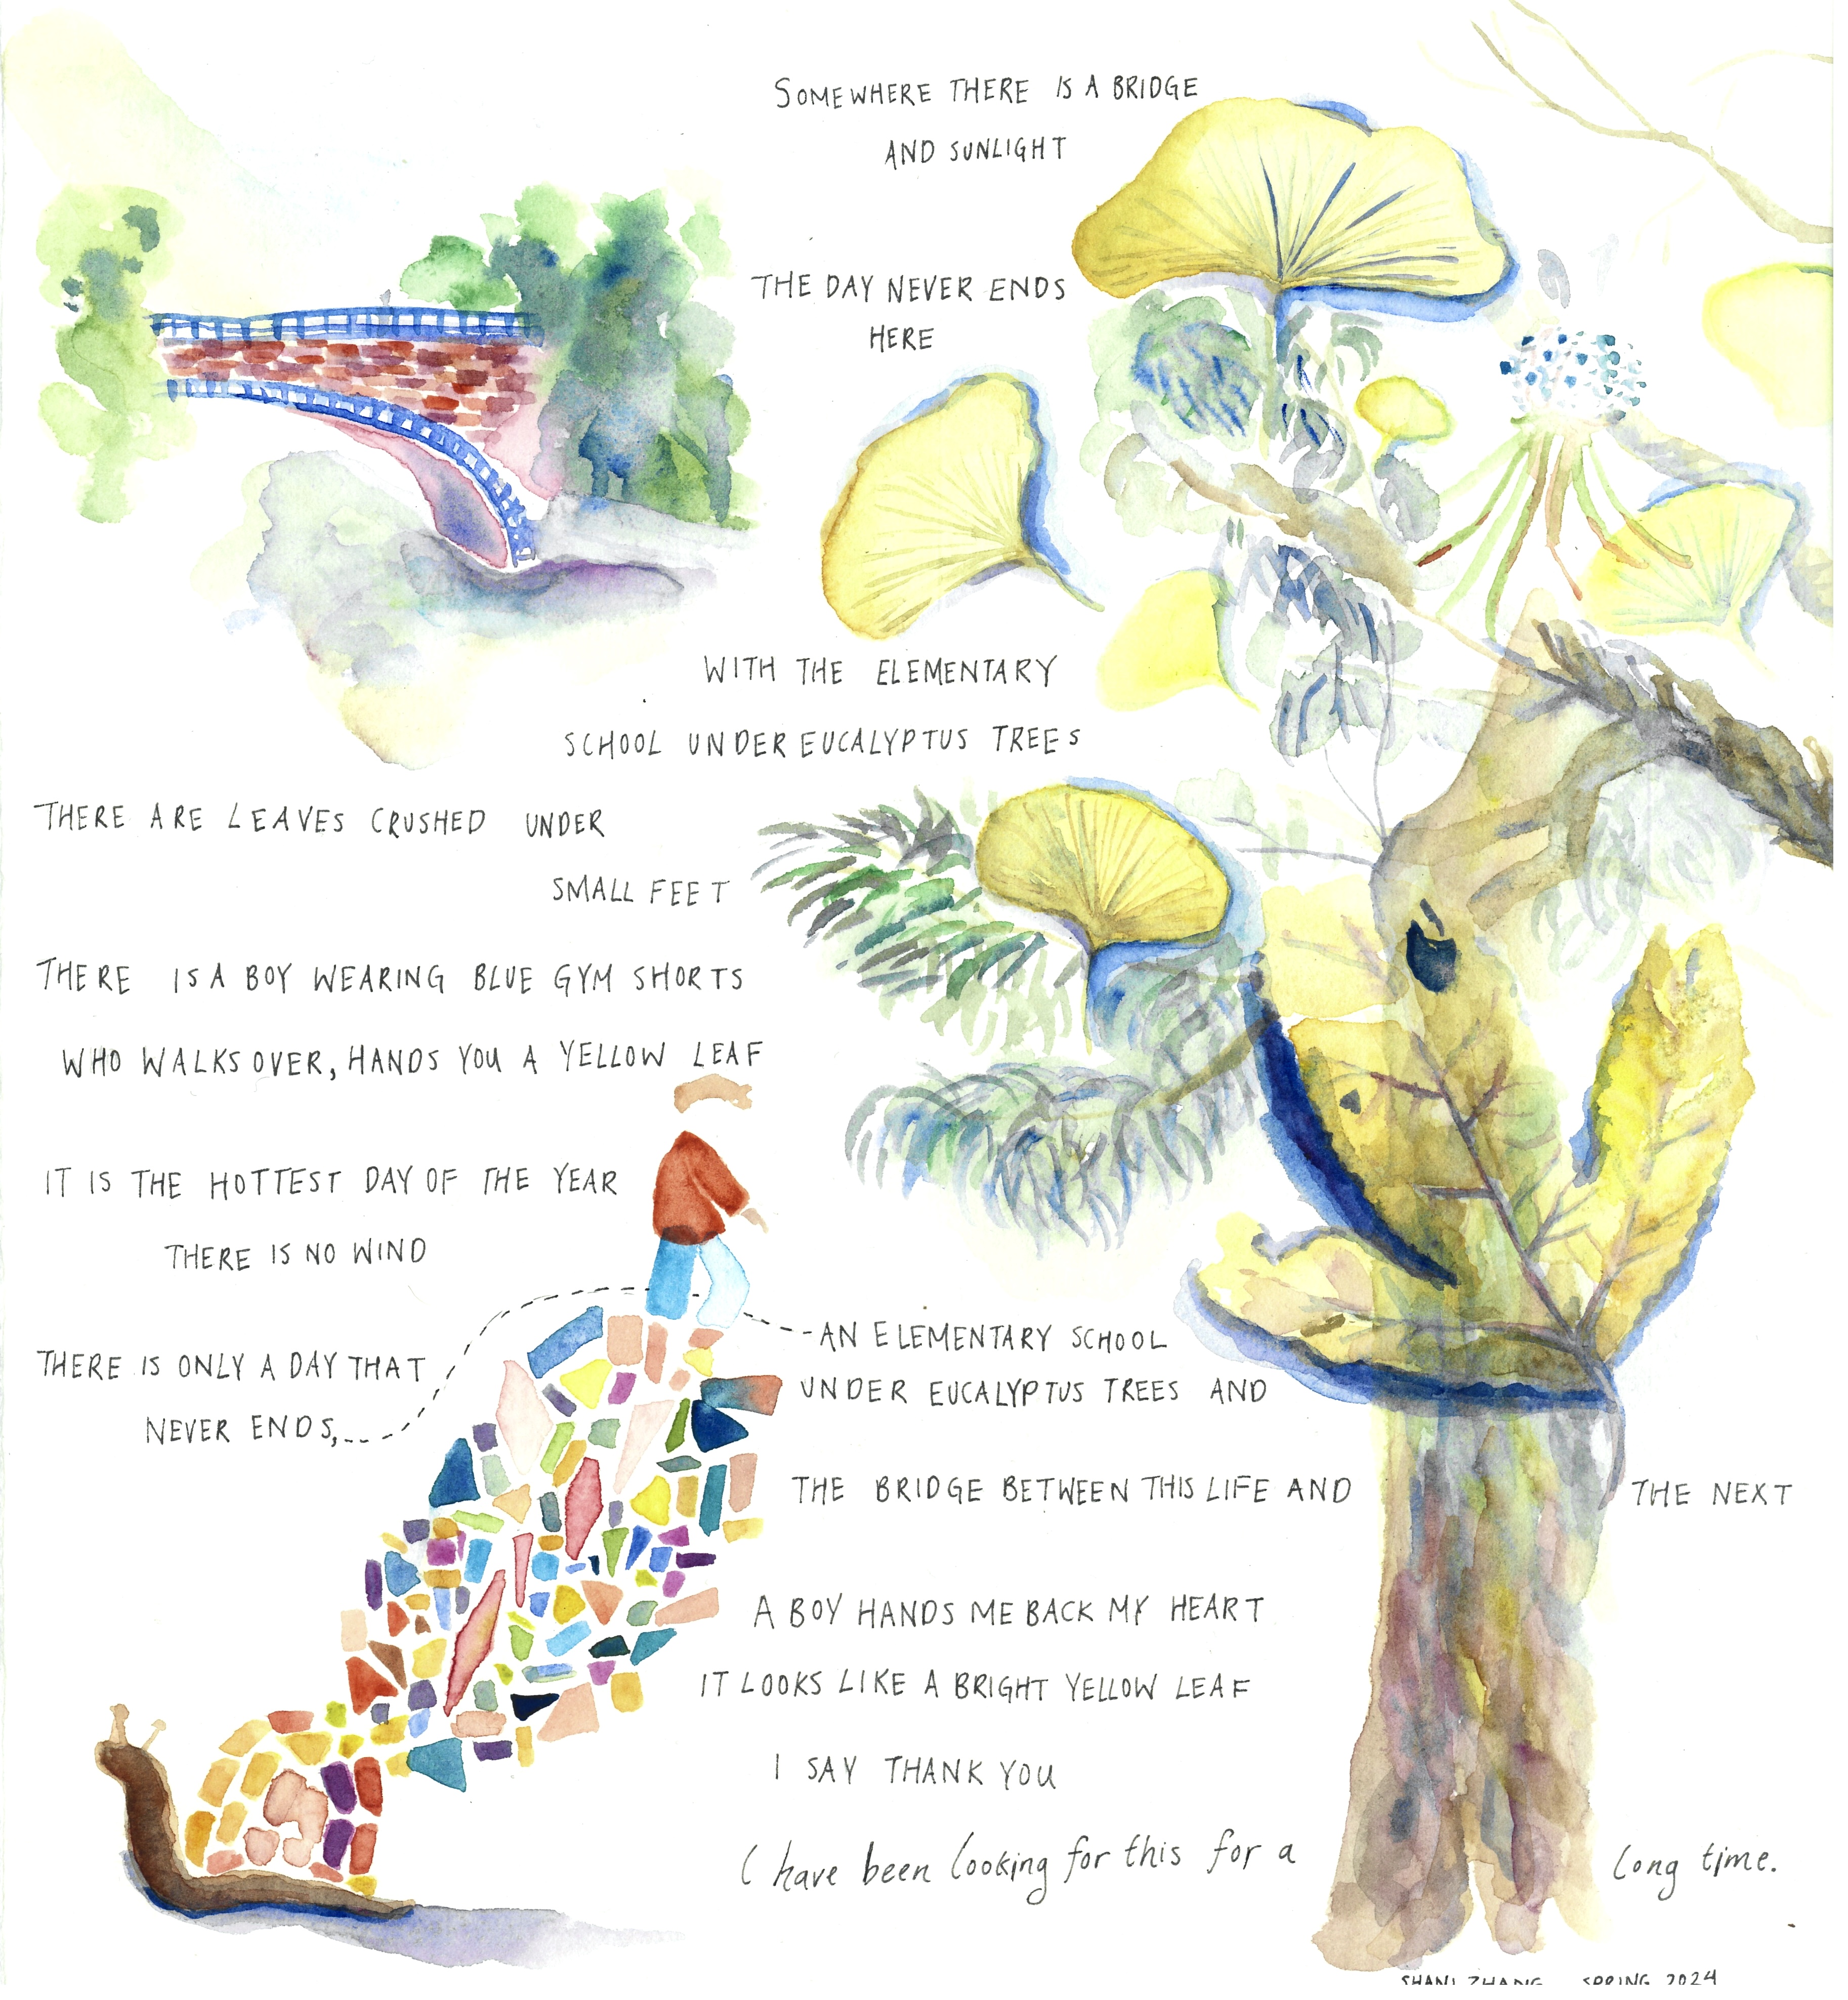 SOMEWHERE THERE IS A BRIDGE
AND SUNLIGHT
THE DAY NEVER ENDS
HERE
WITH THE ELEMENTARY
SCHOOL UNDER EUCALYPTUS TREES
THERE ARE LEAVES CRUSHED UNDER
SMALL FEET
THERE IS A BOY WEARING BLUE GYM SHORTS
WHO WALKS OVER, HANDS YOU A YELLOW LEAF
IT IS THE HOTTEST DAY OF THE YEAR
THERE IS NO WIND
THERE IS ONLY A DAY THAT
NEVER ENDS,
AN ELEMENTARY SCHOOL
UNDER EUCALYPTUS TREES AND
THE BRIDGE BETWEEN THIS LIFE AND THE NEXT
A BOY HANDS ME BACK MY HEART
IT LOOKS LIKE A BRIGHT YELLOW LEAF
I SAY THANK YOU
I have been looking for this for a long time.
SHANI ZHANG SPRING 2024